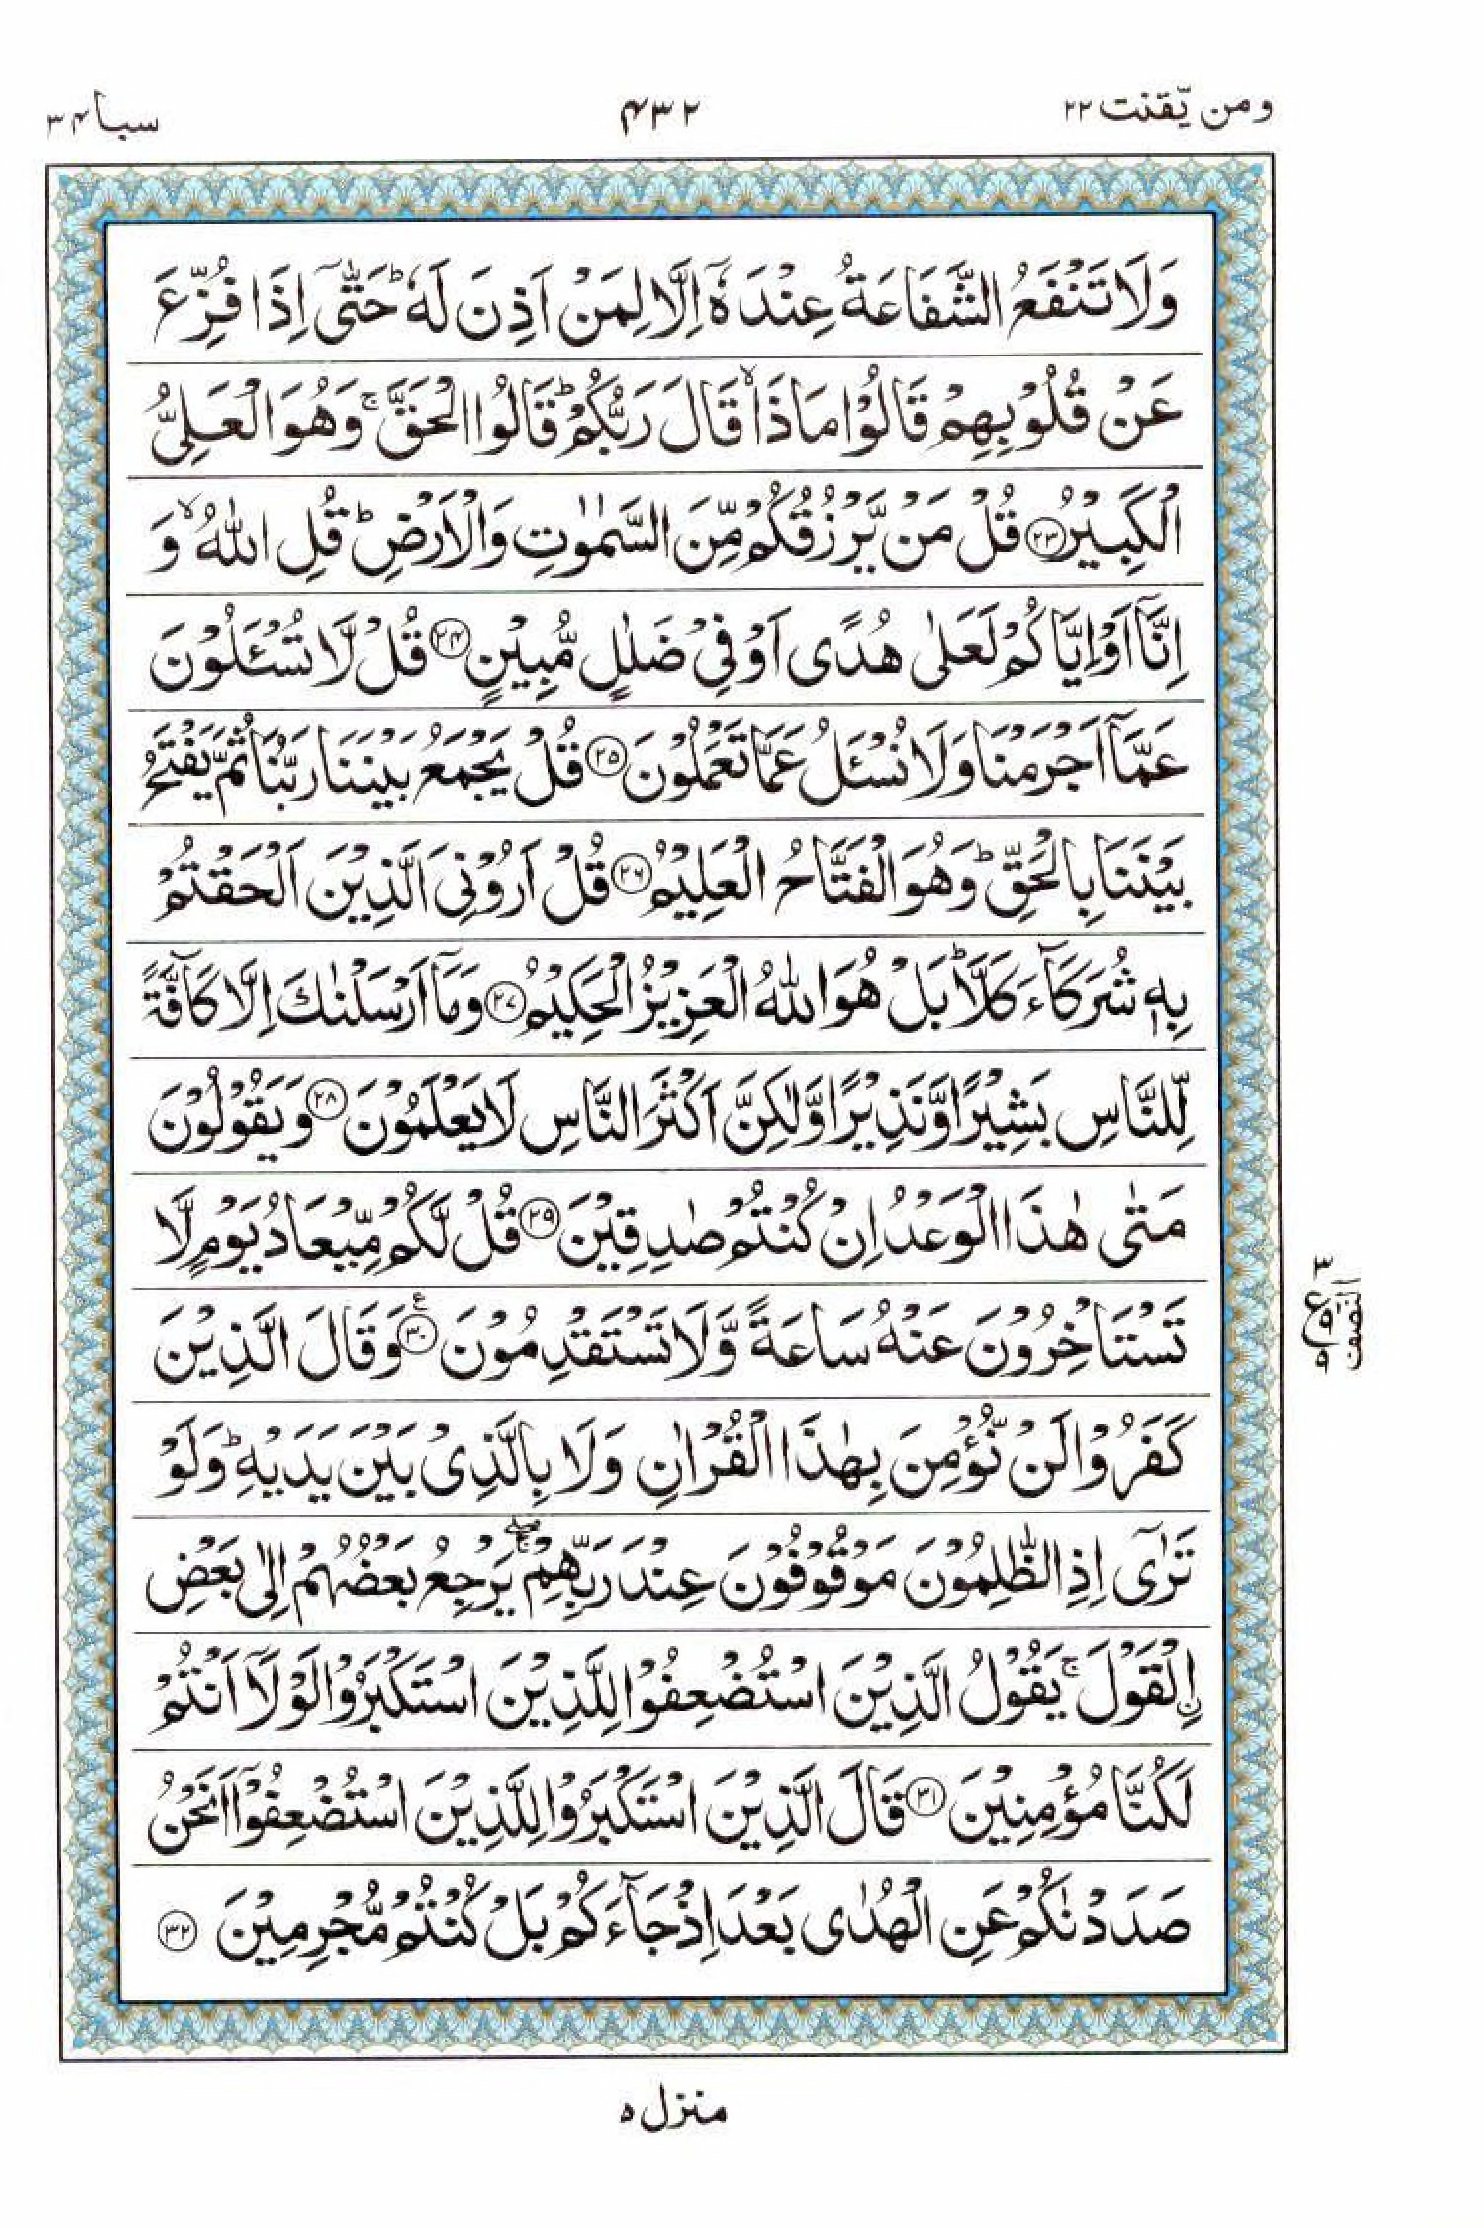 ومن یّقنت ۲۲
۴۳۲
سبا ۳۴
وَلَا تَنْفَعُ الشَّفَاعَةُ عِنْدَهٗۤ اِلَّا لِمَنْ اَذِنَ لَهٗ ؕ حَتّٰۤی اِذَا فُزِّعَ
عَنْ قُلُوْبِهِمْ قَالُوْا مَاذَا ۙ قَالَ رَبُّكُمْ ؕ قَالُوا الْحَقَّ ۚ وَهُوَ الْعَلِیُّ
الْكَبِیْرُ ۝۲۳ قُلْ مَنْ یَّرْزُقُكُمْ مِّنَ السَّمٰوٰتِ وَالْاَرْضِ ؕ قُلِ اللّٰهُ ۙ وَ
اِنَّاۤ اَوْ اِیَّاكُمْ لَعَلٰی هُدًی اَوْ فِیْ ضَلٰلٍ مُّبِیْنٍ ۝۲۴ قُلْ لَّا تُسْـَٔلُوْنَ
عَمَّاۤ اَجْرَمْنَا وَلَا نُسْـَٔلُ عَمَّا تَعْمَلُوْنَ ۝۲۵ قُلْ یَجْمَعُ بَیْنَنَا رَبُّنَا ثُمَّ یَفْتَحُ
بَیْنَنَا بِالْحَقِّ ؕ وَهُوَ الْفَتَّاحُ الْعَلِیْمُ ۝۲۶ قُلْ اَرُوْنِیَ الَّذِیْنَ اَلْحَقْتُمْ
بِهٖ شُرَكَآءَ كَلَّا ؕ بَلْ هُوَ اللّٰهُ الْعَزِیْزُ الْحَكِیْمُ ۝۲۷ وَمَاۤ اَرْسَلْنٰكَ اِلَّا كَآفَّةً
لِّلنَّاسِ بَشِیْرًا وَّنَذِیْرًا وَّلٰكِنَّ اَكْثَرَ النَّاسِ لَا یَعْلَمُوْنَ ۝۲۸ وَیَقُوْلُوْنَ
مَتٰی هٰذَا الْوَعْدُ اِنْ كُنْتُمْ صٰدِقِیْنَ ۝۲۹ قُلْ لَّكُمْ مِّیْعَادُ یَوْمٍ لَّا
تَسْتَاْخِرُوْنَ عَنْهُ سَاعَةً وَّلَا تَسْتَقْدِمُوْنَ ۝۳۰ وَقَالَ الَّذِیْنَ
كَفَرُوْا لَنْ نُّؤْمِنَ بِهٰذَا الْقُرْاٰنِ وَلَا بِالَّذِیْ بَیْنَ یَدَیْهِ ؕ وَلَوْ
تَرٰۤی اِذِ الظّٰلِمُوْنَ مَوْقُوْفُوْنَ عِنْدَ رَبِّهِمْ ۖۚ یَرْجِعُ بَعْضُهُمْ اِلٰی بَعْضِ
ۣالْقَوْلَ ۚ یَقُوْلُ الَّذِیْنَ اسْتُضْعِفُوْا لِلَّذِیْنَ اسْتَكْبَرُوْا لَوْلَاۤ اَنْتُمْ
لَكُنَّا مُؤْمِنِیْنَ ۝۳۱ قَالَ الَّذِیْنَ اسْتَكْبَرُوْا لِلَّذِیْنَ اسْتُضْعِفُوْۤا اَنَحْنُ
صَدَدْنٰكُمْ عَنِ الْهُدٰی بَعْدَ اِذْ جَآءَكُمْ بَلْ كُنْتُمْ مُّجْرِمِیْنَ ۝۳۲
۳
ع
۹
۹
النصف
منزل ۵